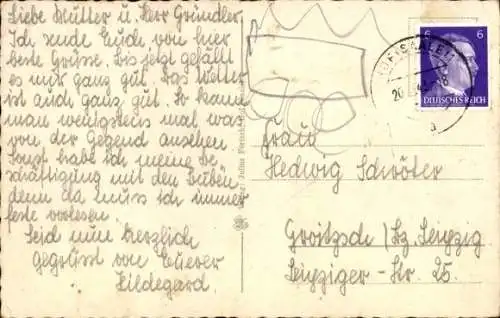 Liebe Mutter u. Herr Gründler,
Ich sende Euch, von hier
beste Grüsse. Bis jetzt gefällt
es mir ganz gut. Das Wetter
ist auch ganz gut. So kann
man wenigstens mal was
von der Gegend ansehen
Sonst habe ich meine Be¬
schäftigung mit den Buben,
denn da muss ich immer
feste vorlesen.
Seid nun herzlich
gegrüsst von Euerer
Hildegard.
6 6
DEUTSCHES REICH
(SAALE)
20.
a
Frau
Hedwig Schröter
Groitzsch / Bz. Leipzig
Leipziger - Str. 25.
Julius